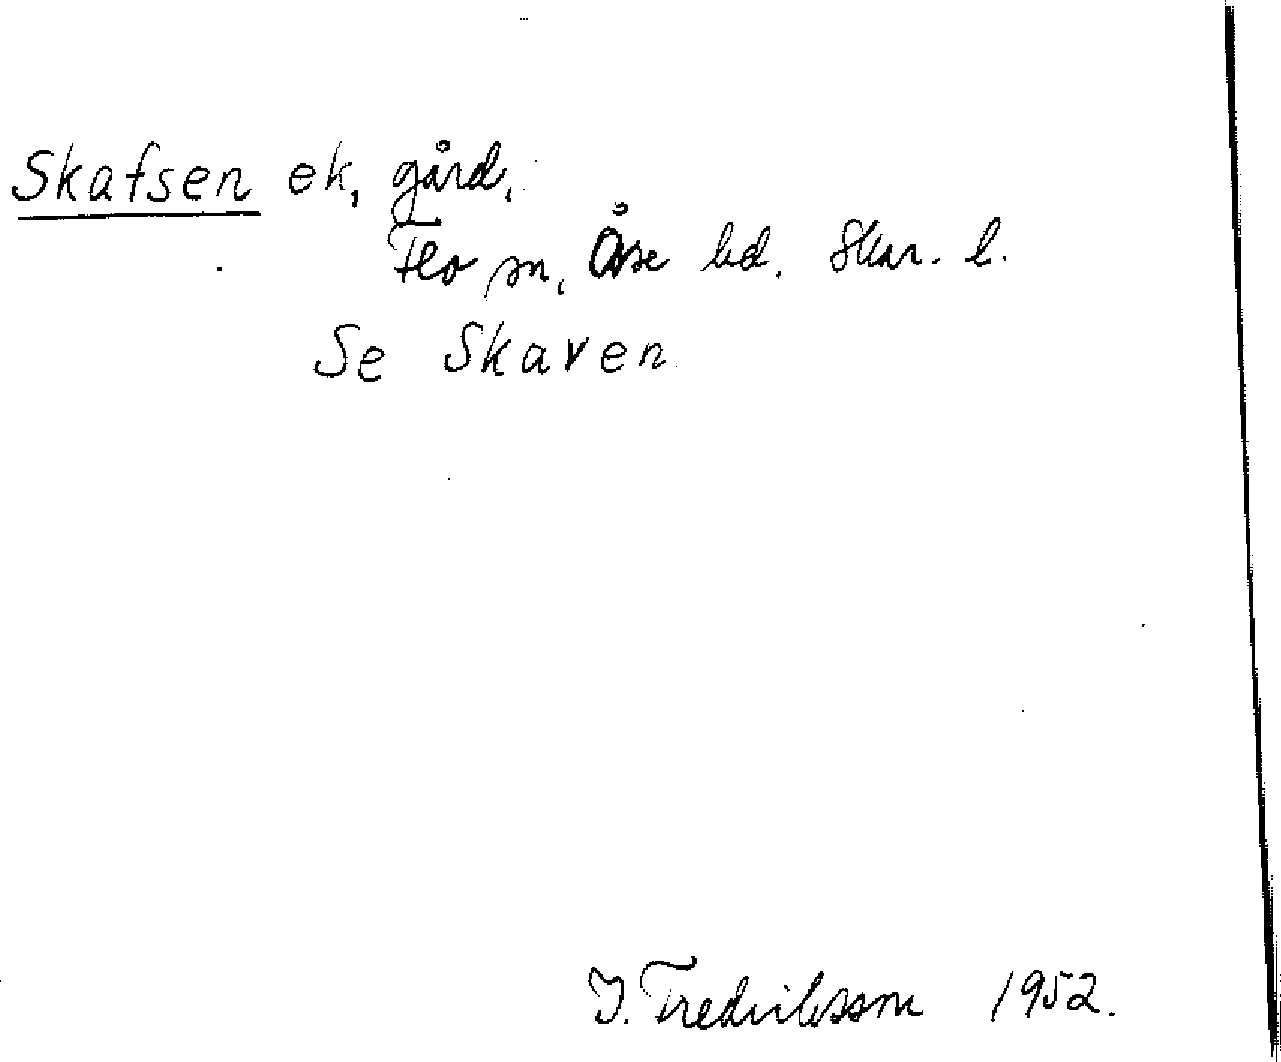 Skafsen ek, gård,
Flo sn, Åse hd. Skar. l.
Se Skaven
I. Fredriksson 1952.